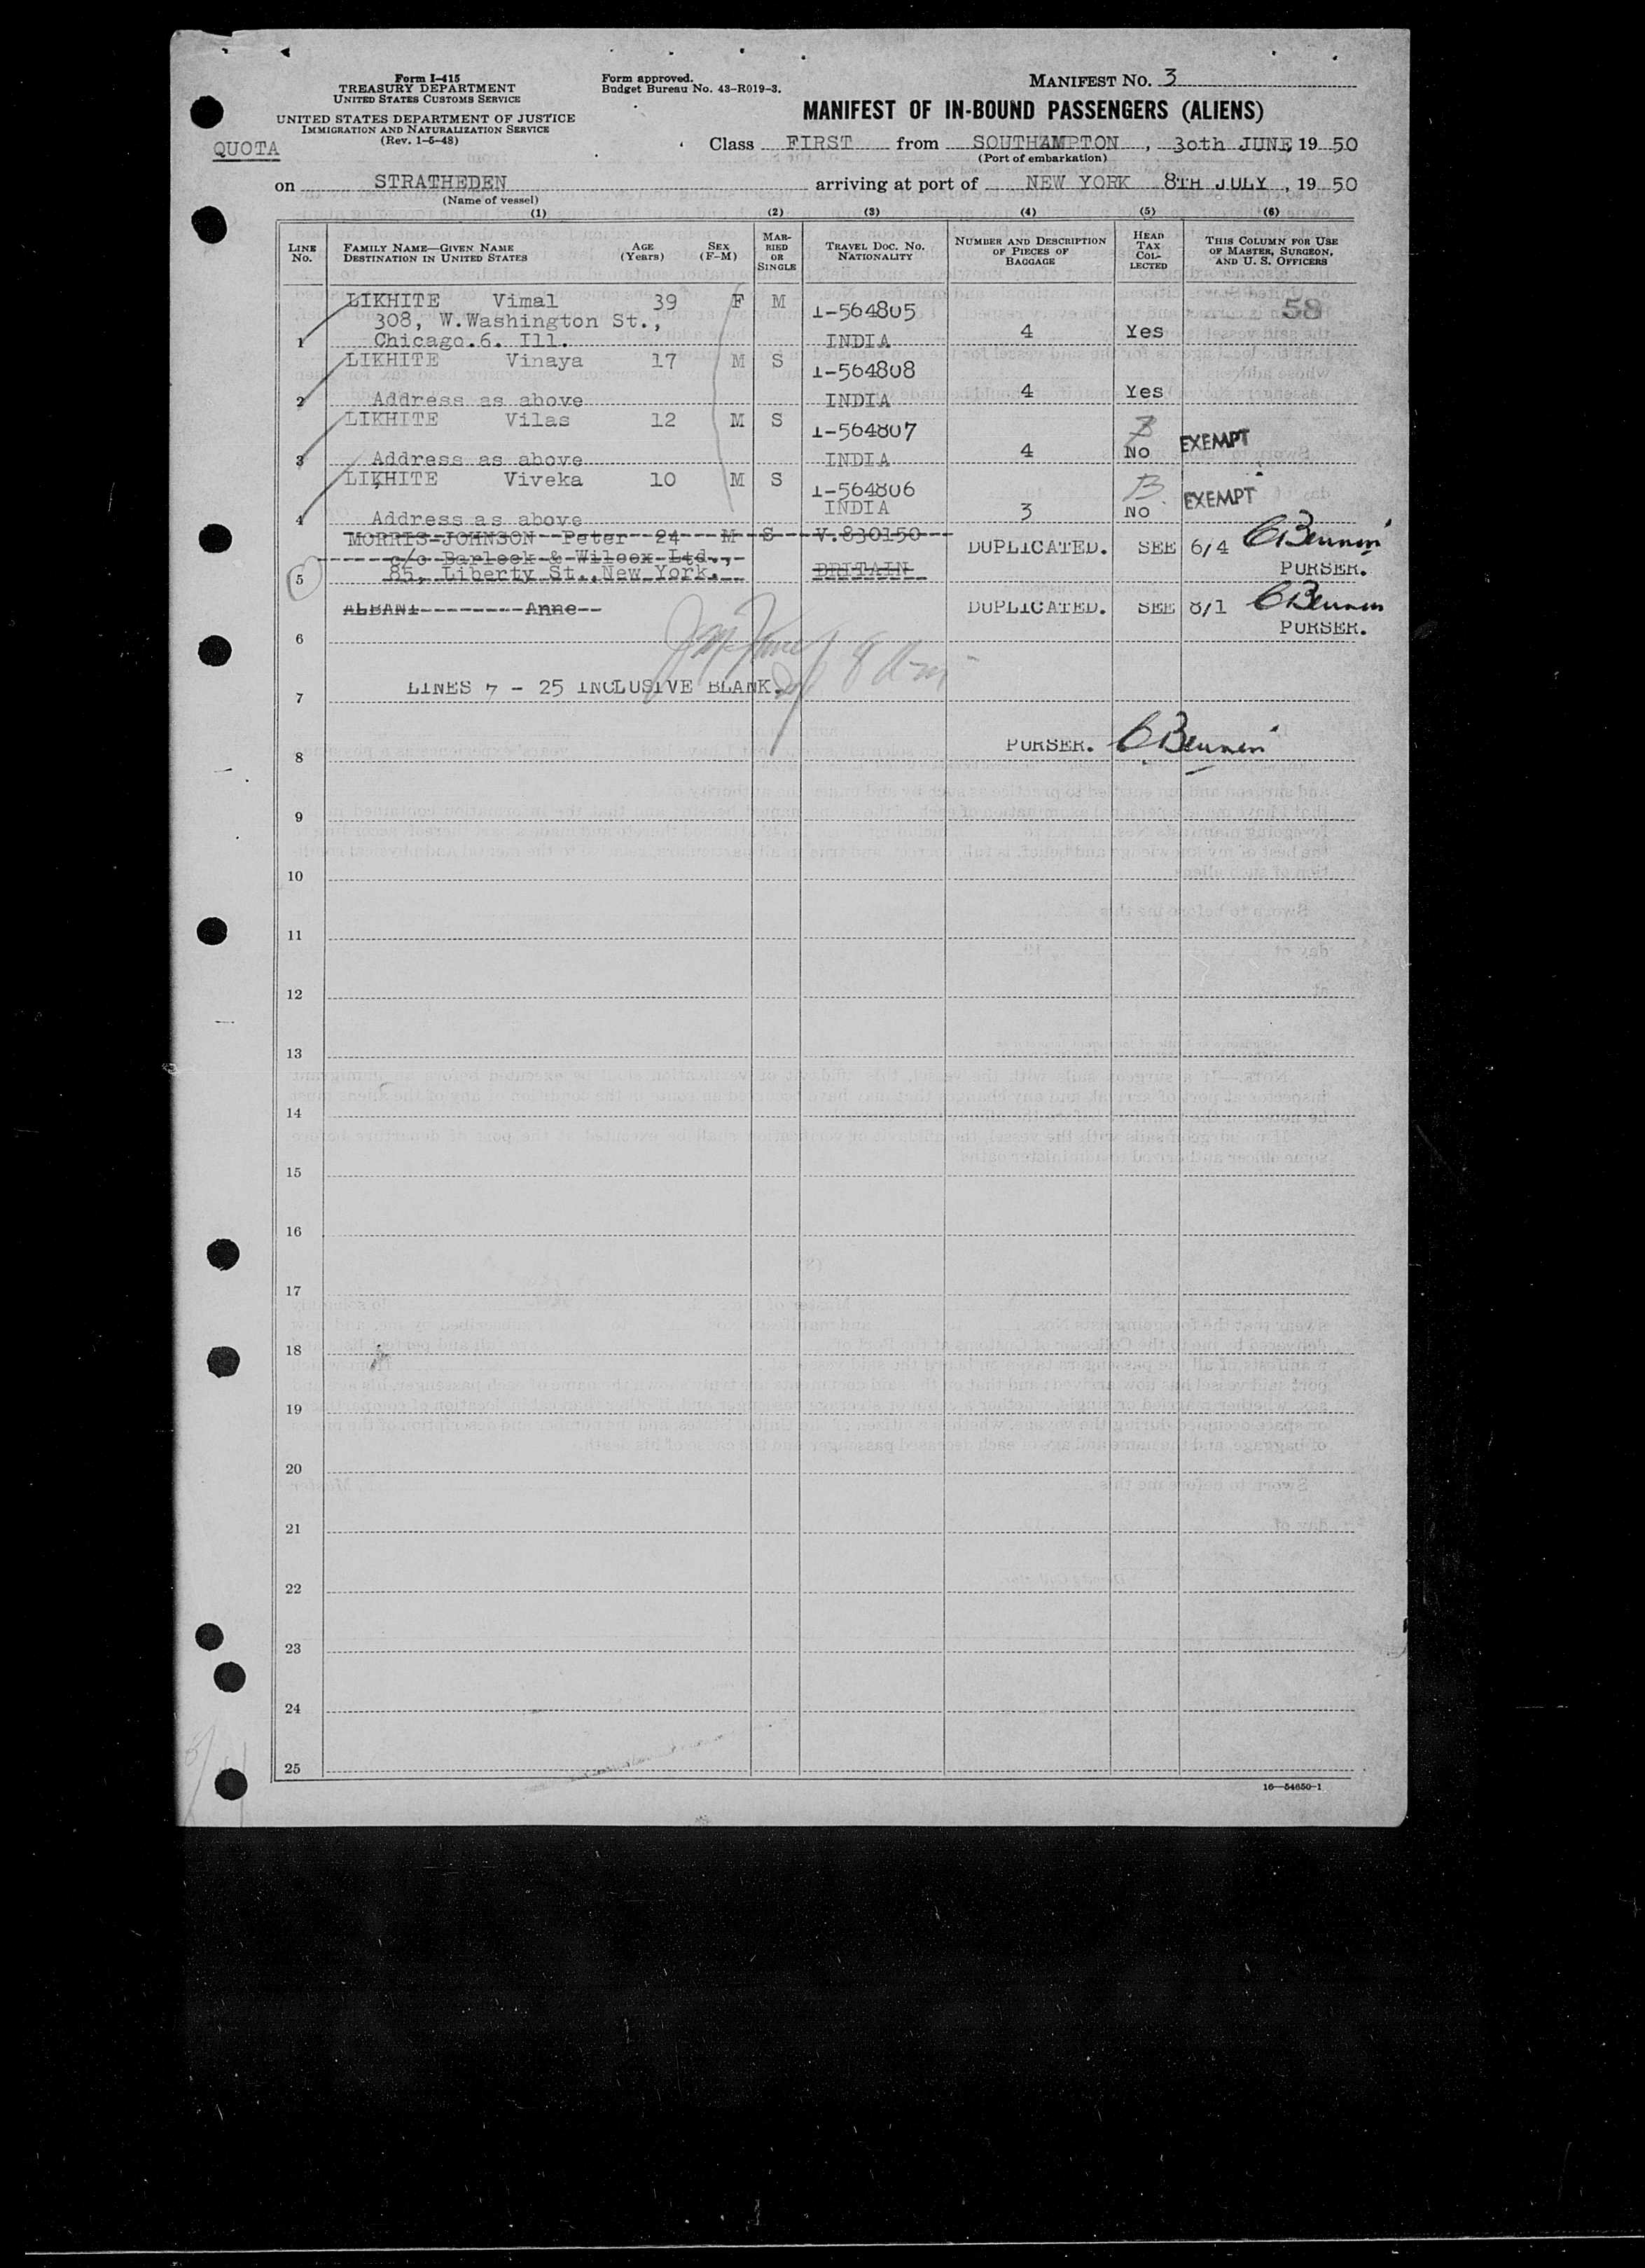 Form I-415
TREASURY DEPARTMENT
UNITED STATES CUSTOMS SERVICE
UNITED STATES DEPARTMENT OF JUSTICE
IMMIGRATION AND NATURALIZATION SERVICE
(Rev. 1-5-48)
QUOTA
Form approved.
Budget Bureau No. 43-R019-3.
MANIFEST NO. 3
MANIFEST OF IN-BOUND PASSENGERS (ALIENS)
Class FIRST from SOUTHAMPTON, 30th JUNE 19 50
(Port of embarkation)
on STRATHEDEN arriving at port of NEW YORK 8TH JULY, 19 50
(Name of vessel)
(1) (2) (3) (4) (5) (6)
LINE No. FAMILY NAME—GIVEN NAME DESTINATION IN UNITED STATES AGE (Years) SEX (F-M) MARRIED OR SINGLE TRAVEL DOC. NO. NATIONALITY NUMBER AND DESCRIPTION OF PIECES OF BAGGAGE HEAD TAX COLLECTED THIS COLUMN FOR USE OF MASTER, SURGEON, AND U. S. OFFICERS
LIKHITE Vimal 39 F M I-564805 58
308, W.Washington St.,
1 Chicago.6. Ill. INDIA 4 Yes
LIKHITE Vinaya 17 M S I-564808
2 Address as above INDIA 4 Yes
LIKHITE Vilas 12 M S I-564807
3 Address as above INDIA 4 No EXEMPT
LIKHITE Viveka 10 M S I-564806
4 Address as above INDIA 3 No EXEMPT
MORRIS-JOHNSON Peter 24 M S V.830150 DUPLICATED. SEE 6/4
c/o Barlock & Wilcox Ltd.,
5 85, Liberty St., New York. BRITAIN PURSER.
ALBANI Anne DUPLICATED. SEE 8/1
6 PURSER.
7 LINES 7 - 25 INCLUSIVE BLANK.
8 PURSER.
9
10
11
12
13
14
15
16
17
18
19
20
21
22
23
24
25
16—54650-1